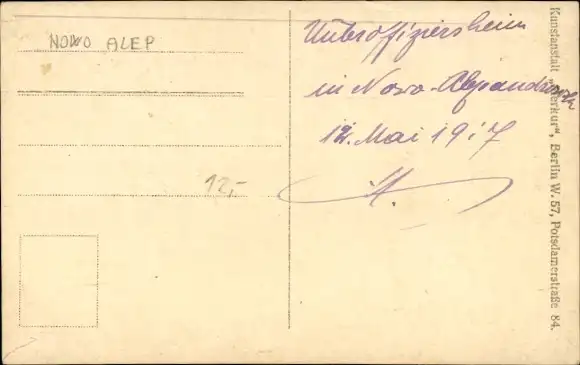 NOWO ALEP
Unteroffiziersheim
in Nowo-Alexandrowsk
12. Mai 1917
H.
12,-
Kunstanstalt "Merkur", Berlin W. 57, Potsdamerstraße 84.